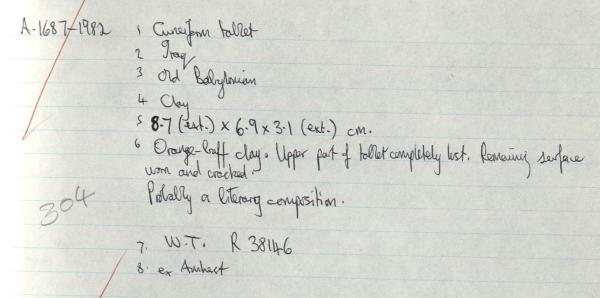 A.1687-1982 1 Cuneiform tablet
2 Iraq
3 Old Babylonian
4 Clay
5 8.7 (ext.) x 6.9 x 3.1 (ext.) cm.
6 Orange-buff clay. Upper part of tablet completely lost. Remaining surface
worn and cracked.
Probably a literary composition.
304
7. W.T. R 38146
8. ex Amherst